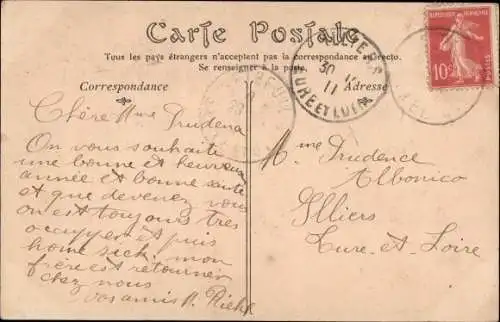 Carte Postale
Tous les pays étrangers n'acceptent pas la correspondance au recto.
Se renseigner à la poste.
10c
POSTES
30
11
EURE ET LOIR
Correspondance
Adresse
Chère Mme Prudena
On vous souhaite
une bonne et heureuse
année et bonne santé
et que devenez vous
on est toujours tres
occupper et puis
home sick. mon
frère est retourner
chez nous
vos amis H. Riehl
Mme Prudence
Albonico
Illiers
Eure-et-Loire